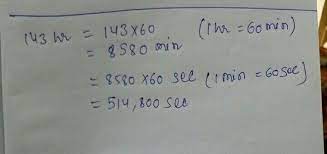 143 hr = 143×60 (1hr = 60min)
= 8580 min
= 8580 ×60 sec (1min = 60sec)
= 514,800 sec